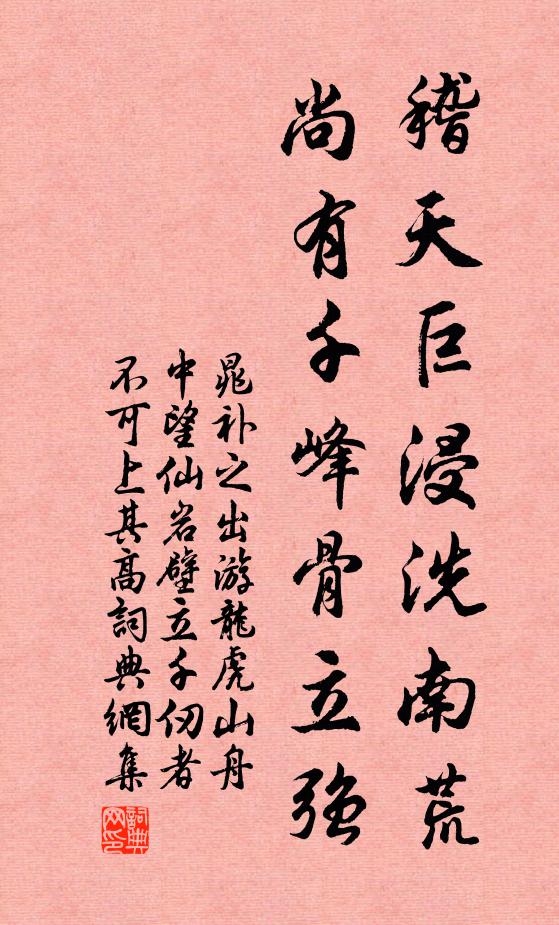 稽天巨浸洗南荒
尚有千峰骨立強
晁补之出游龍虎山舟
中望仙岩壁立千仞者
不可上其高詞典網集
詞典
网印